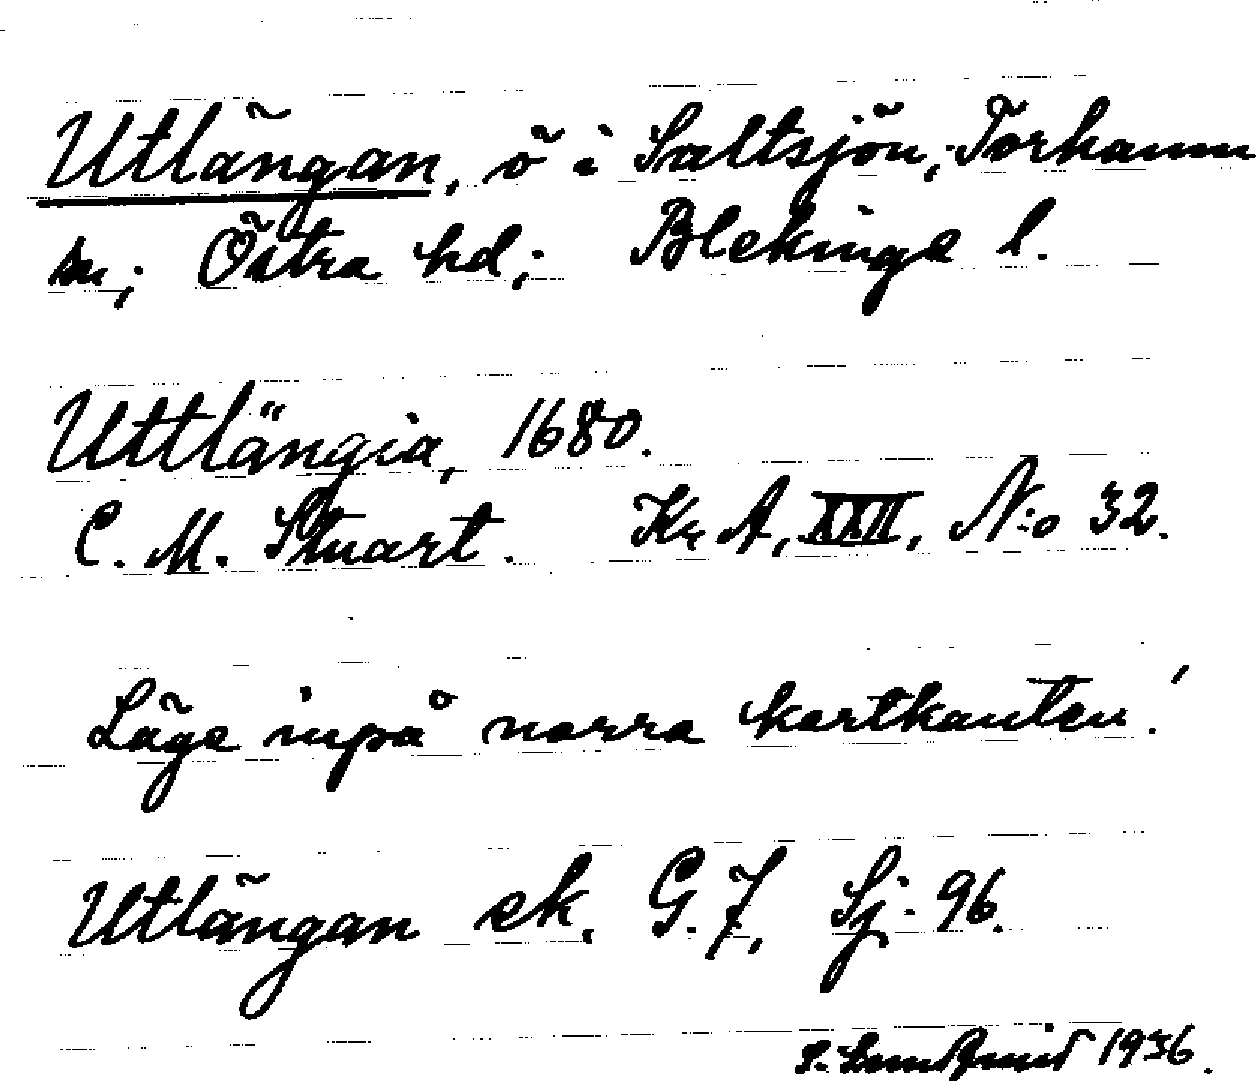 Utlängan, ö i Saltsjön, Torhamn
sn; Östra hd; Blekinge l.
Uttlängia, 1680.
C. M. Stuart. Kr A, XXII, N:o 32.
Läge inpå norra kartkanten!
Utlängan ek. G. 7, Sj. 96.
1936.